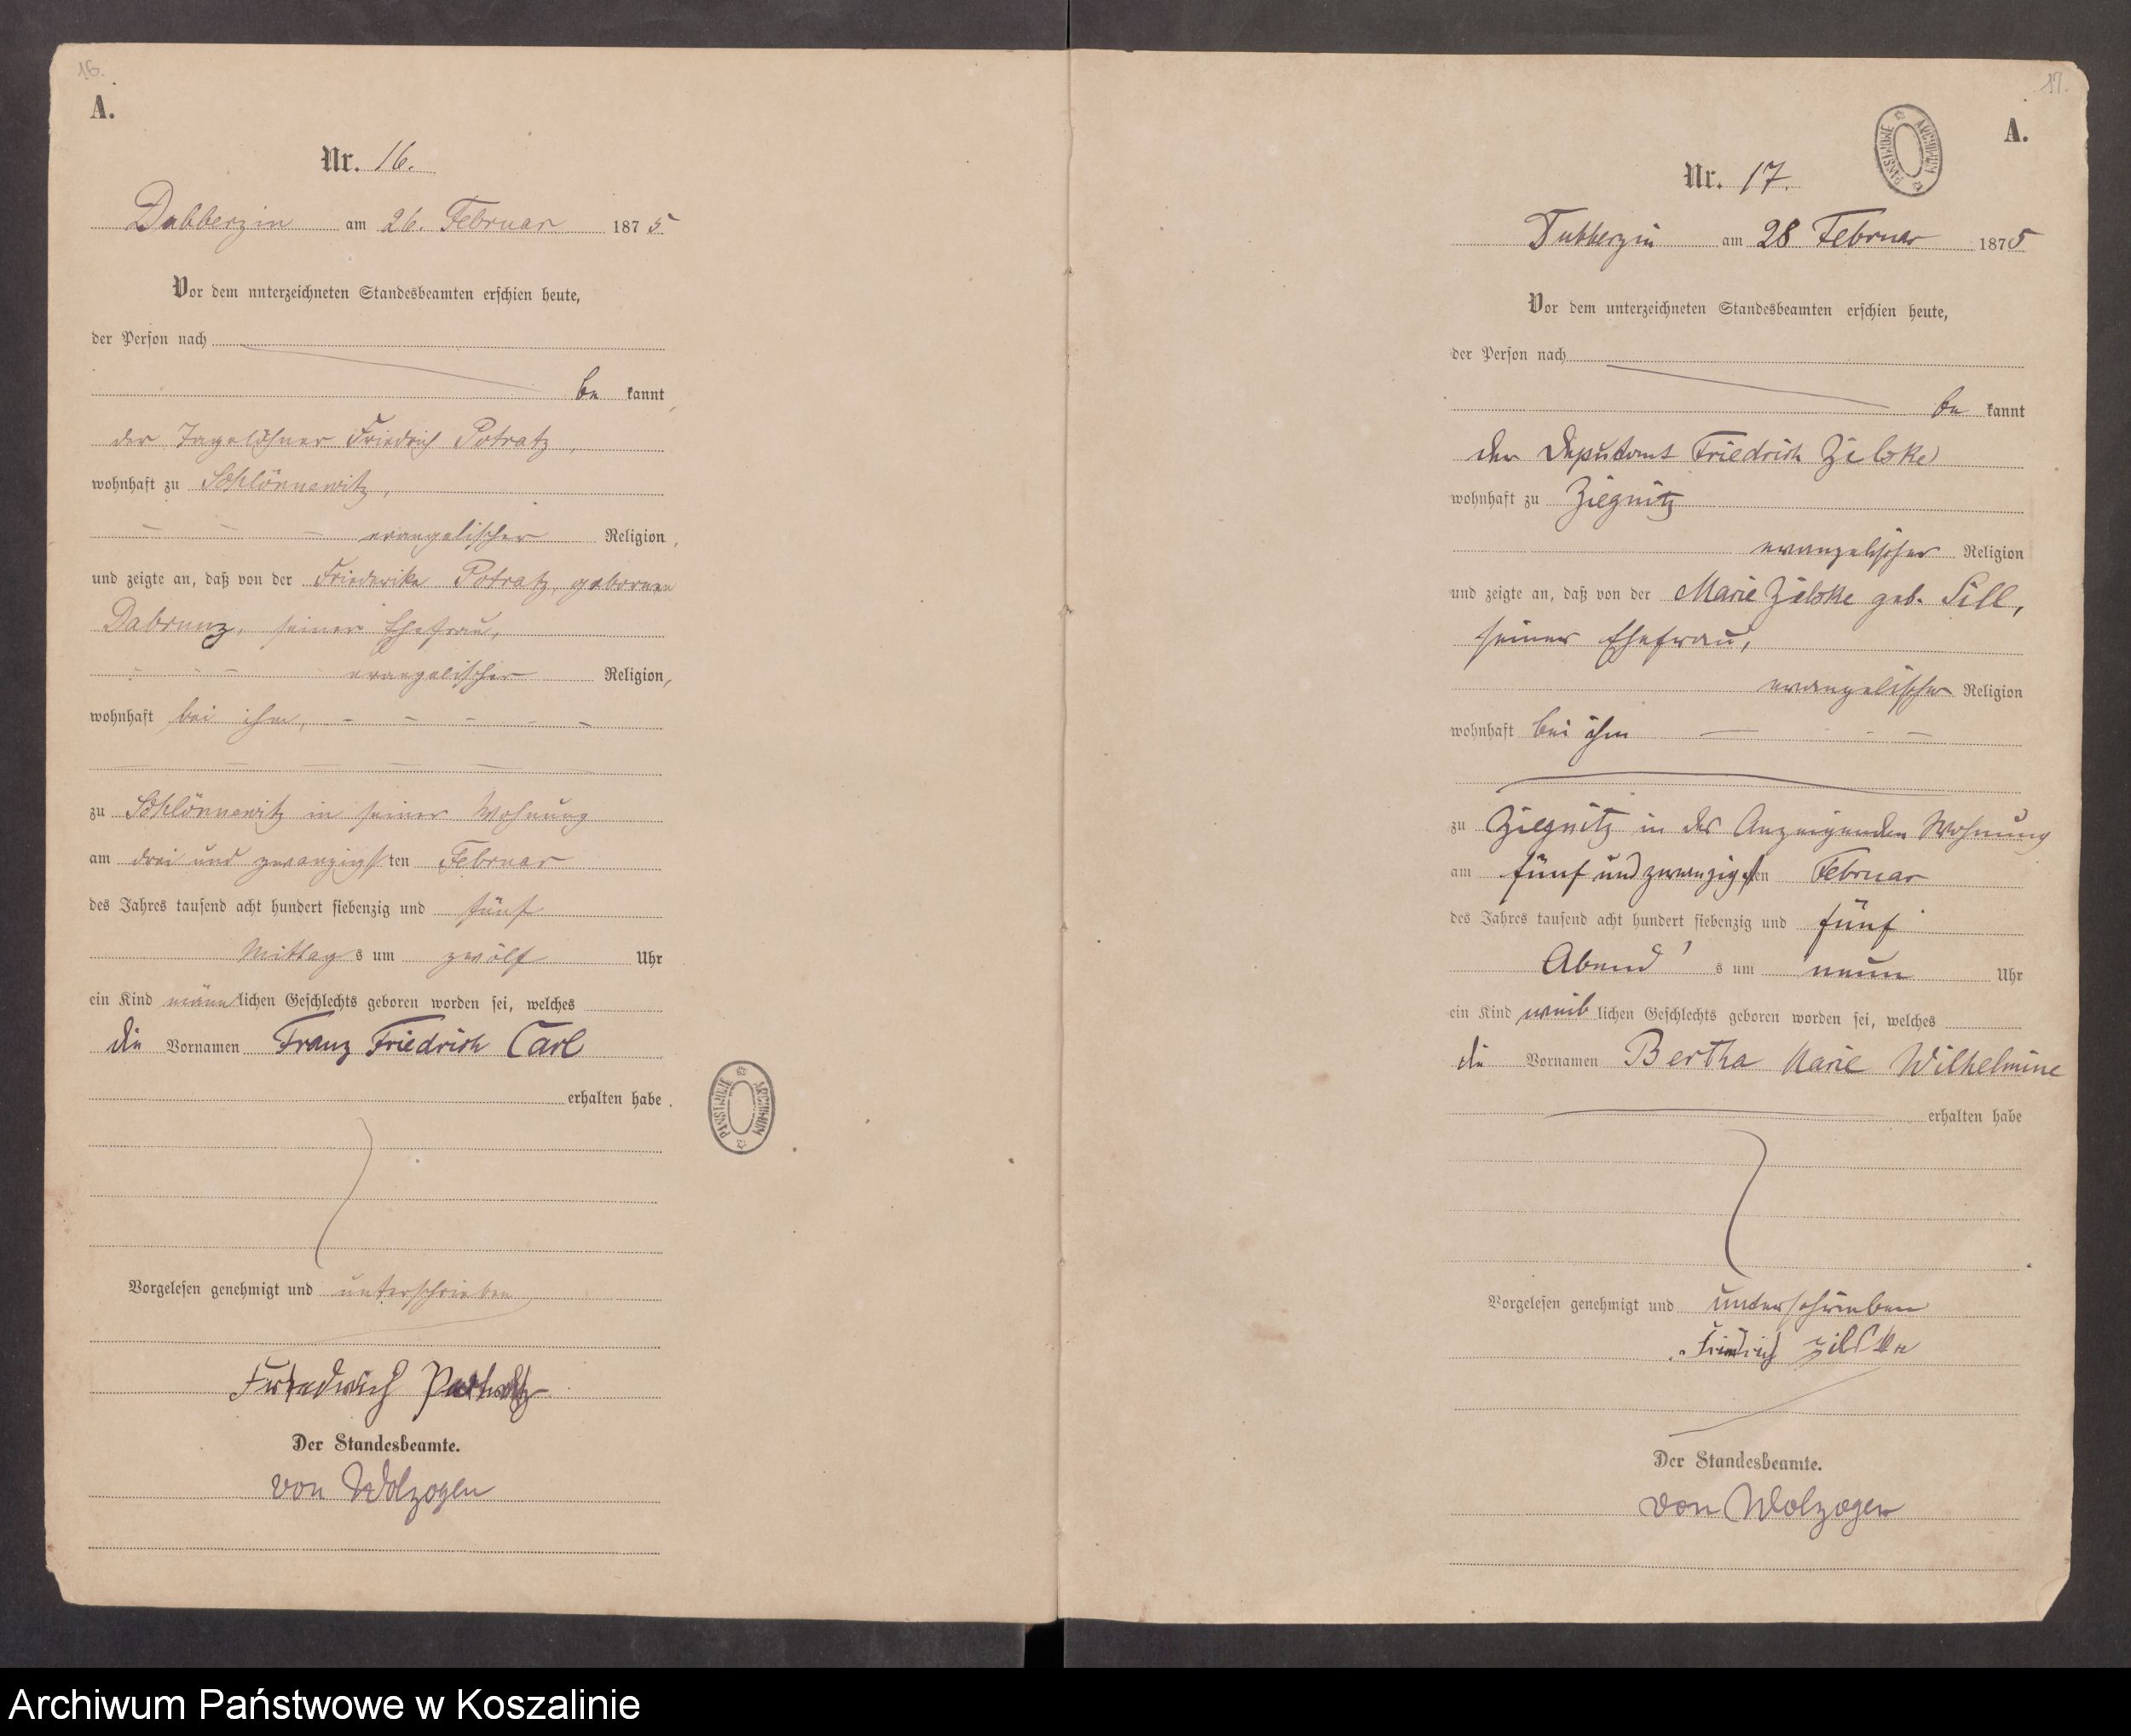 16.
A.
Nr. 16.
Dubberzin am 26. Februar 1875
Vor dem unterzeichneten Standesbeamten erschien heute,
der Person nach
be kannt,
der Tagelöhner Friedrich Potratz,
wohnhaft zu Schlönnewitz,
evangelischer Religion,
und zeigte an, daß von der Friederike Potratz, geborenen
Dabrunz, seiner Ehefrau,
evangelischer Religion,
wohnhaft bei ihm,
zu Schlönnewitz in seiner Wohnung
am drei und zwanzigsten Februar
des Jahres tausend acht hundert siebenzig und fünf
Mittag s um zwölf Uhr
ein Kind männlichen Geschlechts geboren worden sei, welches
die Vornamen Franz Friedrich Carl
erhalten habe.
Vorgelesen genehmigt und unterschrieben
Friedrich
Der Standesbeamte.
von Wolzogen
PAŃSTWOWE ARCHIWUM
17.
A.
PAŃSTWOWE ARCHIWUM
Nr. 17.
Dubberzin am 28 Februar 1875
Vor dem unterzeichneten Standesbeamten erschien heute,
der Person nach
be kannt
der Deputant Friedrich Zielske
wohnhaft zu Ziegnitz
evangelischer Religion
und zeigte an, daß von der Marie Zielske geb. Sill,
seiner Ehefrau,
evangelischer Religion
wohnhaft bei ihm
zu Ziegnitz in des Anzeigenden Wohnung
am fünf und zwanzigsten Februar
des Jahres tausend acht hundert siebenzig und fünf
Abend s um neun Uhr
ein Kind weiblichen Geschlechts geboren worden sei, welches
die Vornamen Bertha Marie Wilhelmine
erhalten habe
Vorgelesen genehmigt und unterschrieben
Friedrich Zilske
Der Standesbeamte.
von Wolzogen
Archiwum Państwowe w Koszalinie